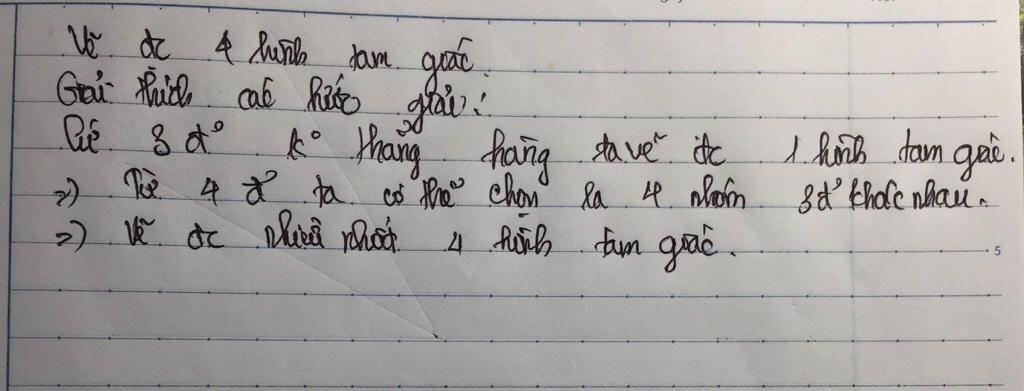 Vẽ đc 4 hình tam giác.
Giải thích các bước giải:
Cứ 3 đ° k° thẳng hàng ta vẽ đc 1 hình tam giác.
=> Từ 4 đ° ta có thể chọn ra 4 nhóm 3đ° khác nhau.
=> Vẽ đc nhiều nhất 4 hình tam giác.
5